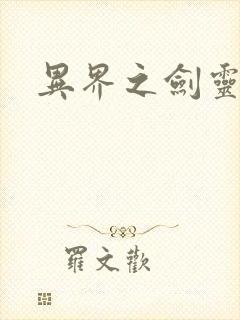 異界之劍靈
羅文歡